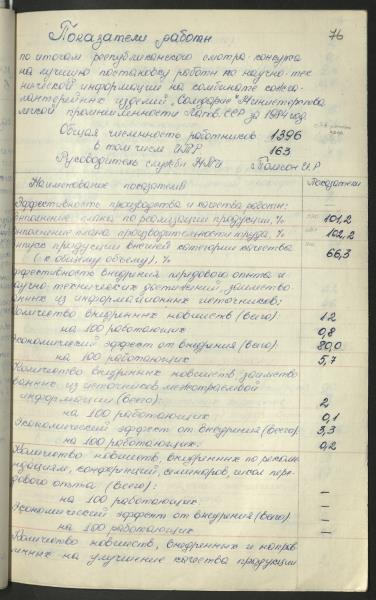 76
Показатели работы
по итогам республиканского смотра-конкурса
на лучшую постановку работы по научно-тех-
нической информации на комбинате кожга-
лантерейных изделий "Сомдарис" Министерства
легкой промышленности Латв. ССР за 1984 год
Общая численность работников 1396
в том числе ИТР 163
Руководитель службы НТИ
Наименование показателей Показатели
Эффективность производства и качества работы: —
Выполнение плана по реализации продукции, % 101,2
Выполнение плана производительности труда, % 102,2
Выпуск продукции высшей категории качества
(к общему объему), % 66,3
Эффективность внедрения передового опыта и
научно-технических достижений, заимство-
ванных из информационных источников:
Количество внедренных новшеств (всего): 12
на 100 работающих 0,8
Экономический эффект от внедрения (всего): 80,0
на 100 работающих 5,7
Количество внедренных новшеств заимство-
ванных из источников межотраслевой
информации (всего): 2
на 100 работающих 0,1
Экономический эффект от внедрения (всего): 3,3
на 100 работающих: 0,2
Количество новшеств, внедренных по рекоме-
ндациям, конференций, семинаров, школ пере-
дового опыта (всего): —
на 100 работающих —
Экономический эффект от внедрения (всего) —
на 100 работающих —
Количество новшеств, внедренных и направ-
ленных на улучшение качества продукции